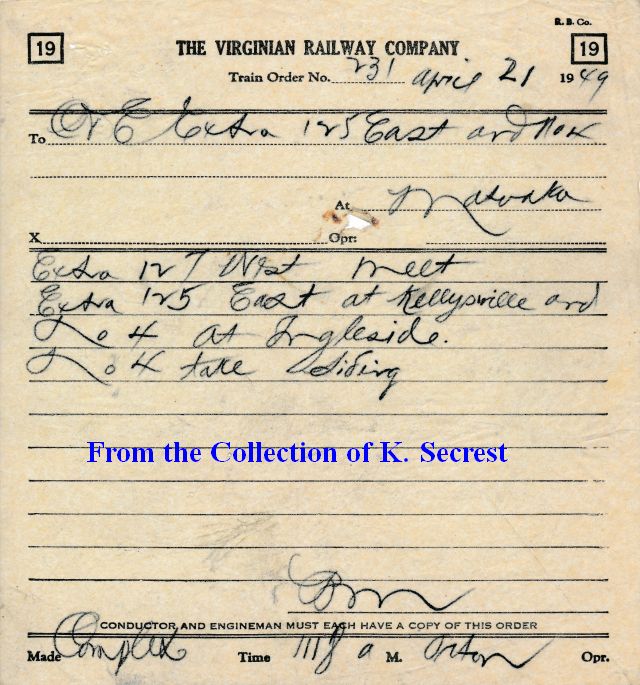 R. B. Co.
19 THE VIRGINIAN RAILWAY COMPANY 19
Train Order No. 231 April 21 1949
To C & E Extra 125 East and No 4
At Matoaka
X Opr:
Extra 127 West meet
Extra 125 East at Kellysville and
No 4 at Ingleside.
No 4 take siding
From the Collection of K. Secrest
CONDUCTOR AND ENGINEMAN MUST EACH HAVE A COPY OF THIS ORDER
Made Complex Time 1118 a M. Opr.